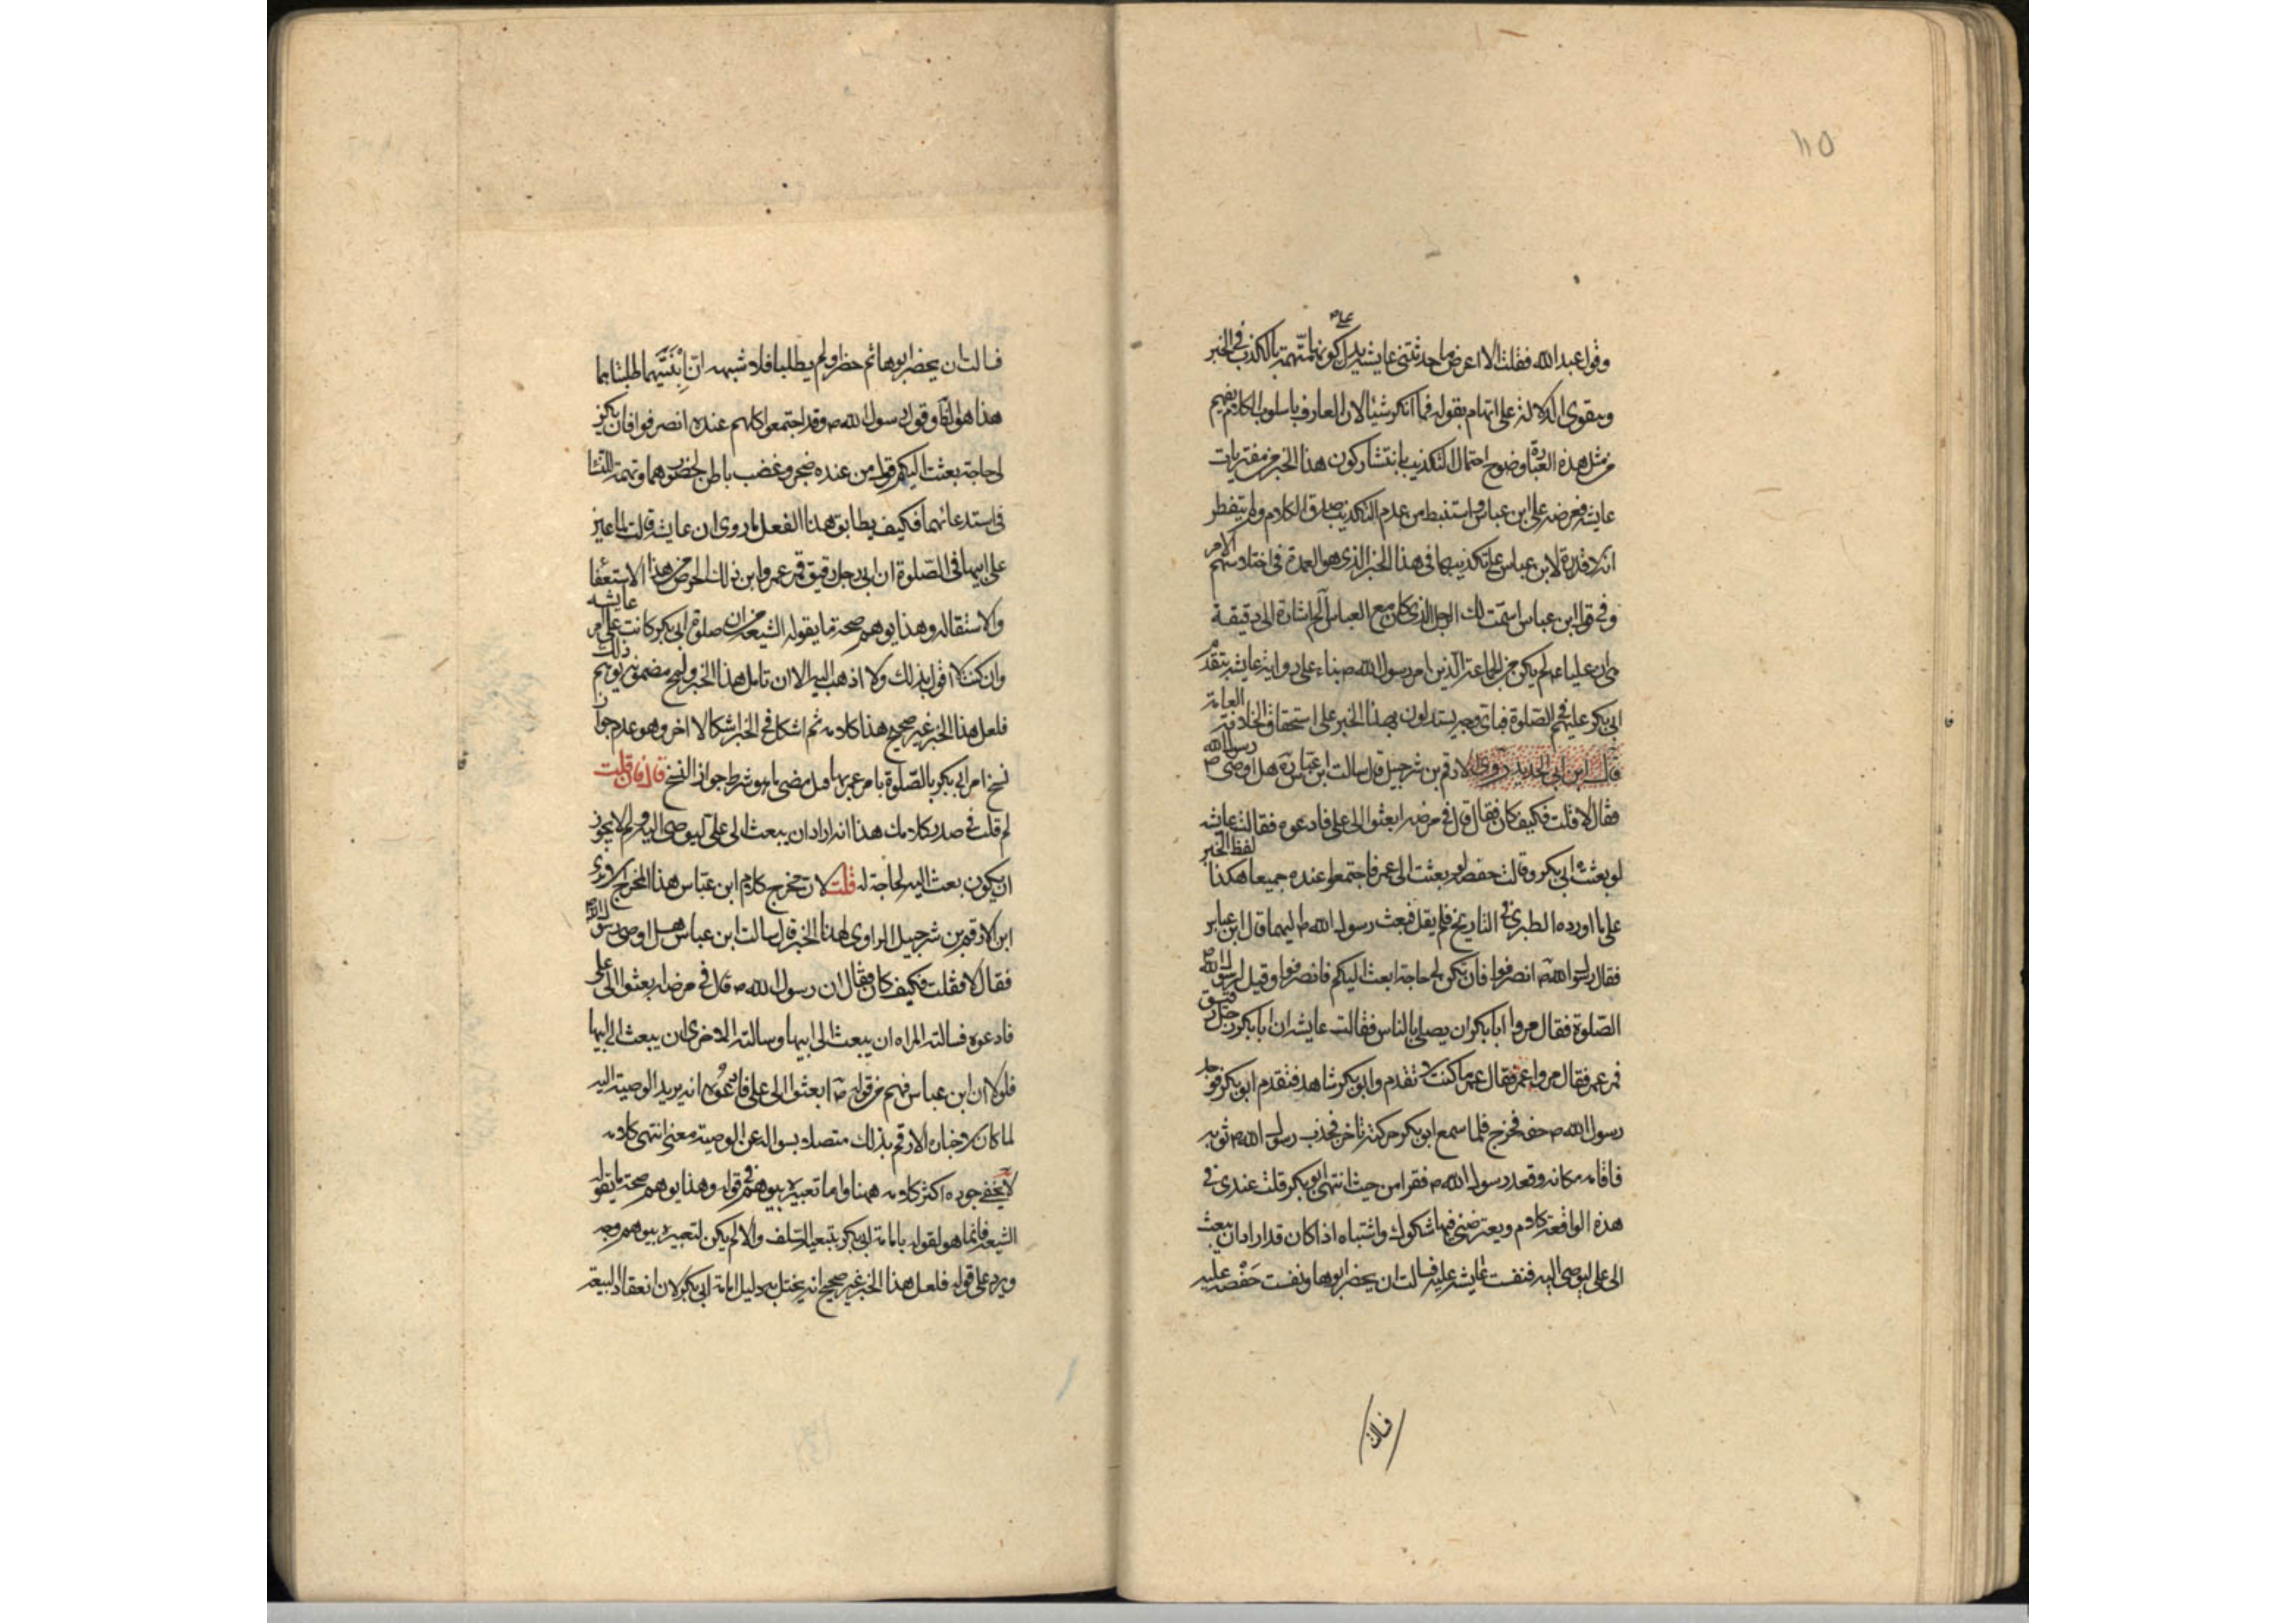 ١١٥
وقول عبد الله فقلت الا اعرض ما حدثتنى عايشه يدل على كونها متهمة بالكذب فى الخبر
ويقوى الدلالة على اتهام بقوله فما انكر شيئا لان العارف باسلوب الكلام يفهم
من مثل هذه العبارة وضوح احتمال التكذيب بانتشار كون هذا الخبر من مفتريات
عايشه فعرضه على ابن عباس واستنبط من عدم التكذيب صدق الكلام ولم يتفطر
انه لا قدرة لابن عباس على تكذيبها فى هذا الخبر الذى هو العمدة فى اختلاستهم الامر
وفى قول ابن عباس اسمت لك الرجل الذى كان مع العباس الخ اشارة الى دقيقة
هى ان عليا ع لم يكن من الجماعة الذين امر رسول الله ص بناء على رواية عايشه بتقدم
ابى بكر عليهم فى الصلوة فباى وجه يستدلون بهذا الخبر على استحقاق الخلافة العامة
قال ابن ابى الحديد روى الارقم بن شرجيل قال سالت ابن عباس ره هل اوصى رسول الله ص
فقال لا قلت فكيف كان فقال قال فى مرضه ابعثوا الى على فادعوه فقالت عايشه
لو بعثت الى ابى بكر وقالت حفصه لو بعثت الى عمر فاجتمعوا عنده جميعا هكذا لفظ الخبر
على ما اورده الطبرى فى التاريخ فلم يقل فبعث رسول الله ص اليهما قال ابن عباس
فقال رسول الله ص انصرفوا فان تكن لى حاجة ابعث اليكم فانصرفوا وقيل لرسول الله ص
الصلوة فقال مروا ابا بكر ان يصلى بالناس فقالت عايشه ان ابا بكر رجل رقيق
فمر عمر فقال مروا عمر فقال عمر ما كنت لا تقدم وابو بكر شاهد فتقدم ابو بكر فوجد
رسول الله ص خفة فخرج فلما سمع ابو بكر حركته تاخر فجذب رسول الله ص ثوبه
فاقامه مكانه وقعد رسول الله ص فقرا من حيث انتهى ابو بكر قلت عندى فى
هذه الواقعة كلام ويعترضنى فيها شكوك واشتباه اذا كان قد اراد ان يبعث
الى على ليوصى اليه فنفست عايشه عليه فسالت ان يحضر ابوها ونفست حفصه عليه
فسالت
فسالت ان يحضر ابوها ثم حضرا ولم يطلبا فلا شبهه ان ابنتيهما طلبتاهما
هذا هو الظ وقول رسول الله ص وقد اجتمعوا كلهم عنده انصرفوا فان يكن
لى حاجة بعثت اليكم قول من عنده ضجر وغضب باطن لحضورهما وتهمة للنسا
فى استدعائهما فكيف يطابق هذا الفعل ما روى ان عايشه قالت لما عين
على ابيها فى الصلوة ان ابى رجل رقيق فمر عمر واين ذلك الحرص من هذا الاستعفا
والاستقاله وهذا يوهم صحة ما يقوله الشيعه من ان صلوة ابى بكر كانت عن امر عايشه
وان كنت لا اقول بذلك ولا اذهب اليه الا ان تامل هذا الخبر ولمح مضمونه يوهم ذلك
فلعل هذا الخبر غير صحيح هذا كلامه ثم اشكل فى الخبر اشكالا اخر وهو عدم جواز
نسخ امر ابى بكر بالصلوة بامر عمر بها قبل مضى ما هو شرط جواز النسخ قال فان قلت
لم قلت فى صدر كلامك هذا انه اراد ان يبعث الى على ليوصى اليه ولم لا يجوز
ان يكون بعث اليه لحاجة له قلت لان مخرج كلام ابن عباس هذا المخرج الا ترى
ان الارقم بن شرجيل الراوى لهذا الخبر قال سالت ابن عباس هل اوصى رسول الله ص
فقال لا فقلت فكيف كان فقال ان رسول الله ص قال فى مرضه ابعثوا الى على
فادعوه فسالته المراه ان يبعث الى ابيها وسالته الاخرى ان يبعث الى ابيها
فلولا ان ابن عباس فهم من قوله ص ابعثوا الى على فادعوه انه يريد الوصية اليه
لما كان لاخباره الارقم بذلك متصلا بسواله عن الوصية معنى انتهى كلامه
لا يخفى جوده اكثر كلامه ههنا واما تعبيره بيوهم فى قوله وهذا يوهم صحة ما يقوله
الشيعه فانما هو لقوله بامامة ابى بكر بتبعية السلف والا لم يكن لتعبيره بيوهم وجه
ويرد على قوله فلعل هذا الخبر غير صحيح انه يختل به دليل امامة ابى بكر لان انعقاد البيعة